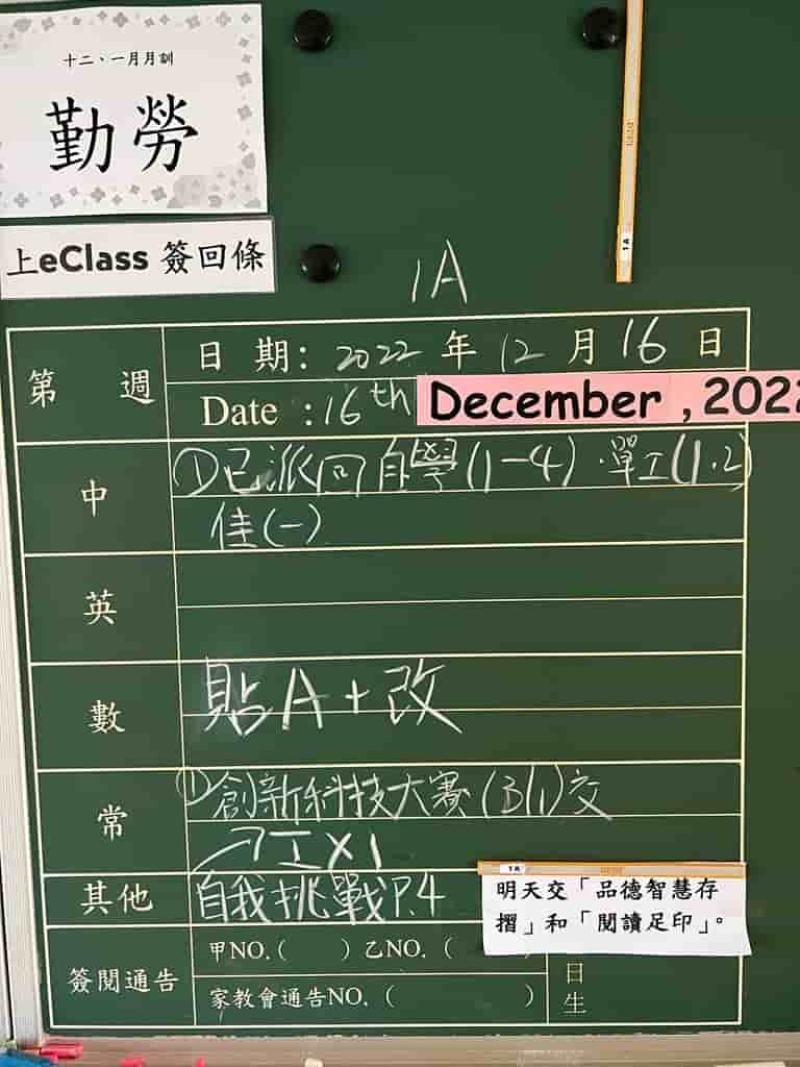 十二、一月月訓
勤勞
上eClass 簽回條
1A
第 週
日 期: 2022 年 12 月 16 日
Date :16th December , 2022
中
①已派回自學(1-4)·單工(1·2)
佳(一)
英
數
貼A+改
常
①創新科技大賽(3/1)交
工×1
其他
自我挑戰P.4
明天交「品德智慧存
摺」和「閱讀足印」。
簽閱通告
甲NO.( )乙NO.(
家教會通告NO.( )
日
生